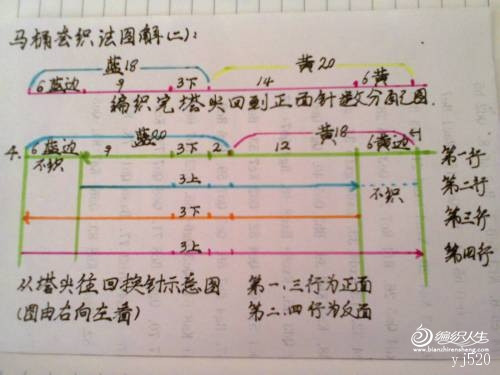 马桶套织法图解(二):
蓝18 黄20
6蓝边 9 3下 14 6黄
编织完塔尖回到正面针数分配图.
蓝20 黄18
4. 6蓝边 9 3下 2 12 6黄边 第一行
不织 3上 不织 第二行
3下 第三行
3上 第四行
从塔尖往回换针示意图 第一.三行为正面
(图由右向左看) 第二.四行为反面
编织人生
www.bianzhirensheng.com
yj520